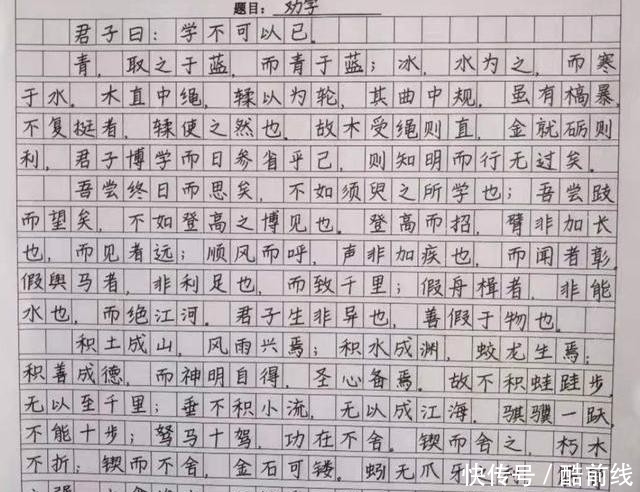 题目: 劝学
君子曰: 学不可以已.
青, 取之于蓝, 而青于蓝; 冰, 水为之, 而寒
于水. 木直中绳, 輮以为轮, 其曲中规. 虽有槁暴,
不复挺者, 輮使之然也. 故木受绳则直, 金就砺则
利, 君子博学而日参省乎己, 则知明而行无过矣.
吾尝终日而思矣, 不如须臾之所学也; 吾尝跂
而望矣, 不如登高之博见也. 登高而招, 臂非加长
也, 而见者远; 顺风而呼, 声非加疾也, 而闻者彰.
假舆马者, 非利足也, 而致千里; 假舟楫者, 非能
水也, 而绝江河. 君子生非异也, 善假于物也.
积土成山, 风雨兴焉; 积水成渊, 蛟龙生焉;
积善成德, 而神明自得, 圣心备焉. 故不积蛙跬步,
无以至千里; 垂不积小流, 无以成江海. 骐骥一跃,
不能十步; 驽马十驾, 功在不舍. 锲而舍之, 朽木
不折; 锲而不舍, 金石可镂. 蚓无爪牙
快传号／酷前线